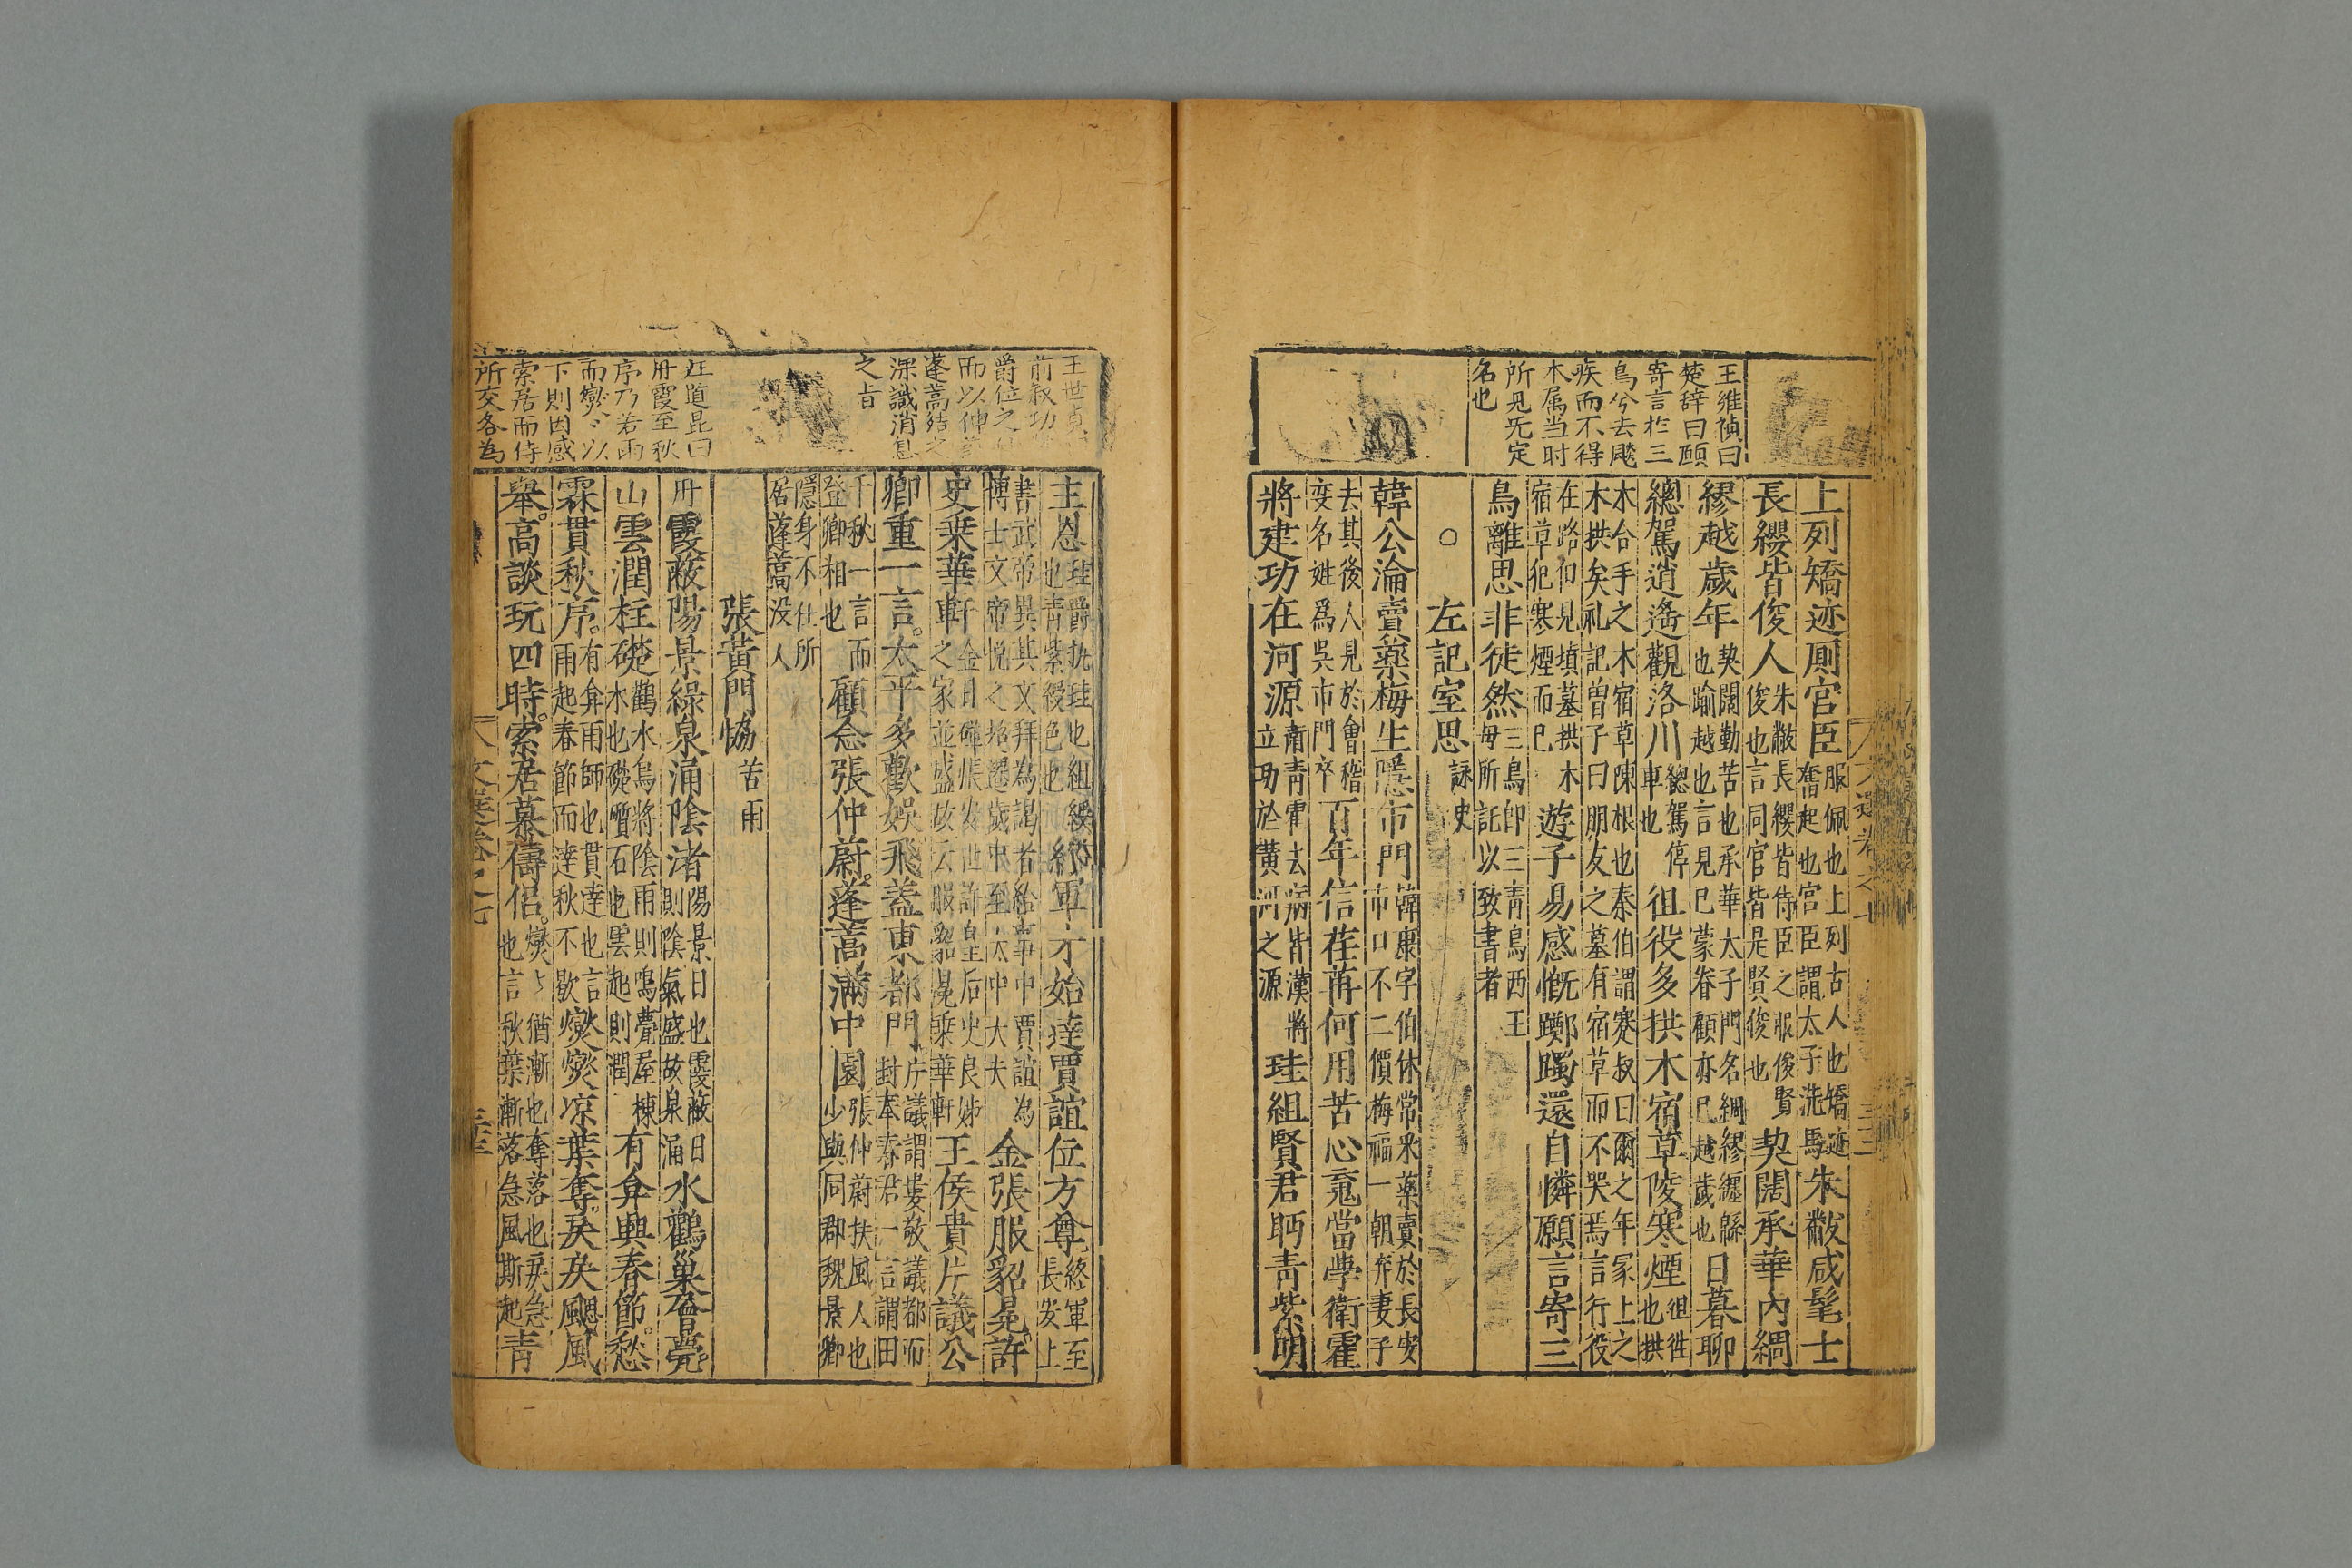 王維禎曰
楚辞曰願
寄言於三
鳥兮去飈
疾而不得
木属当时
所見无定
名也
上列矯迹厠宮臣服佩也上列古人也矯迹
奮起也宮臣謂太子洗馬朱黻咸髦士
長纓皆俊人朱黻長纓皆侍臣之服俊賢
俊也言同官皆是賢俊也契闊承華內綢
繆越歲年契闊勤苦也承華太子門名綢繆纒緜
也踰越也言見巳巳蒙眷顧亦巳越歲也日暮聊
總駕逍遙觀洛川總駕停
車也徂役多拱木宿草陵寒煙徂徃
也拱
木合手之木宿草陳根也秦伯謂蹇叔曰爾之年冢上之
木拱矣礼記曽子曰朋友之墓有宿草而不哭焉言行役
在路仰見墳墓拱木
宿草犯寒煙而巳遊子易感慨躑躅還自憐願言寄三
鳥離思非徒然三鳥即三青鳥西王
毋所託以致書者
○左記室思詠史
韓公淪賣藥梅生隱市門韓康字伯休常采藥賣於長安
市口不二價梅福一朝弃妻子
去其後人見於會稽
变名姓爲吳市門卒百年信荏苒何用苦心䰟當學衛霍
將建功在河源衛青霍去病皆漢將
立功於黃河之源珪組賢君眄青紫明
王世貞
前叙功
爵位之
而以仲蔚
蓬蒿結之
深識消息
之旨
主恩珪爵執珪也組綬
也青紫綬色也終軍才始達賈誼位方尊終軍至
長安上
書武帝異其文拜為謁者給事中賈誼為
博士文帝悅之超遷歲中至太中大夫金張服貂冕許
史乘華軒金日磾張安世許皇后史良娣
之家並盛故云服貂冕乘華軒王侯貴片議公
卿重一言片議謂婁敬議都而
封奉春君一言謂田
千秋一言而
登卿相也太平多歡娛飛蓋東都門顧念張仲蔚蓬蒿滿中園張仲蔚扶風人也
少與同郡魏景卿
隱身不仕所
居蓬蒿没人
張黃門協苦雨
汪道昆曰
丹霞至秋
序乃若雨
而爕〻以
下則因感
索居而侍
所交各為
丹霞蔽陽景綠泉涌陰渚陽景日也霞蔽日
則陰氣盛故泉涌水鸛巢層甍
山雲潤柱礎鸛水鳥將陰雨則鳴甍屋棟
木也礎礩石也雲起則潤有弇興春節愁
霖貫秋序有弇雨師也貫達也言
雨起春節而達秋不歇爕爕凉葉奪戾戾颸風
舉高談玩四時索居慕儔侣爕〻猶漸也奪落也戾急
也言秋葉漸落急風斯起青
文選卷之七